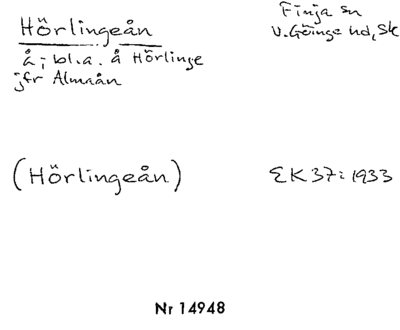 Hörlingeån
Finja sn
V. Göinge hd, Sk
å; bl.a. å Hörlinge
jfr Almaån
(Hörlingeån)
EK 37: 1933
Nr 14948